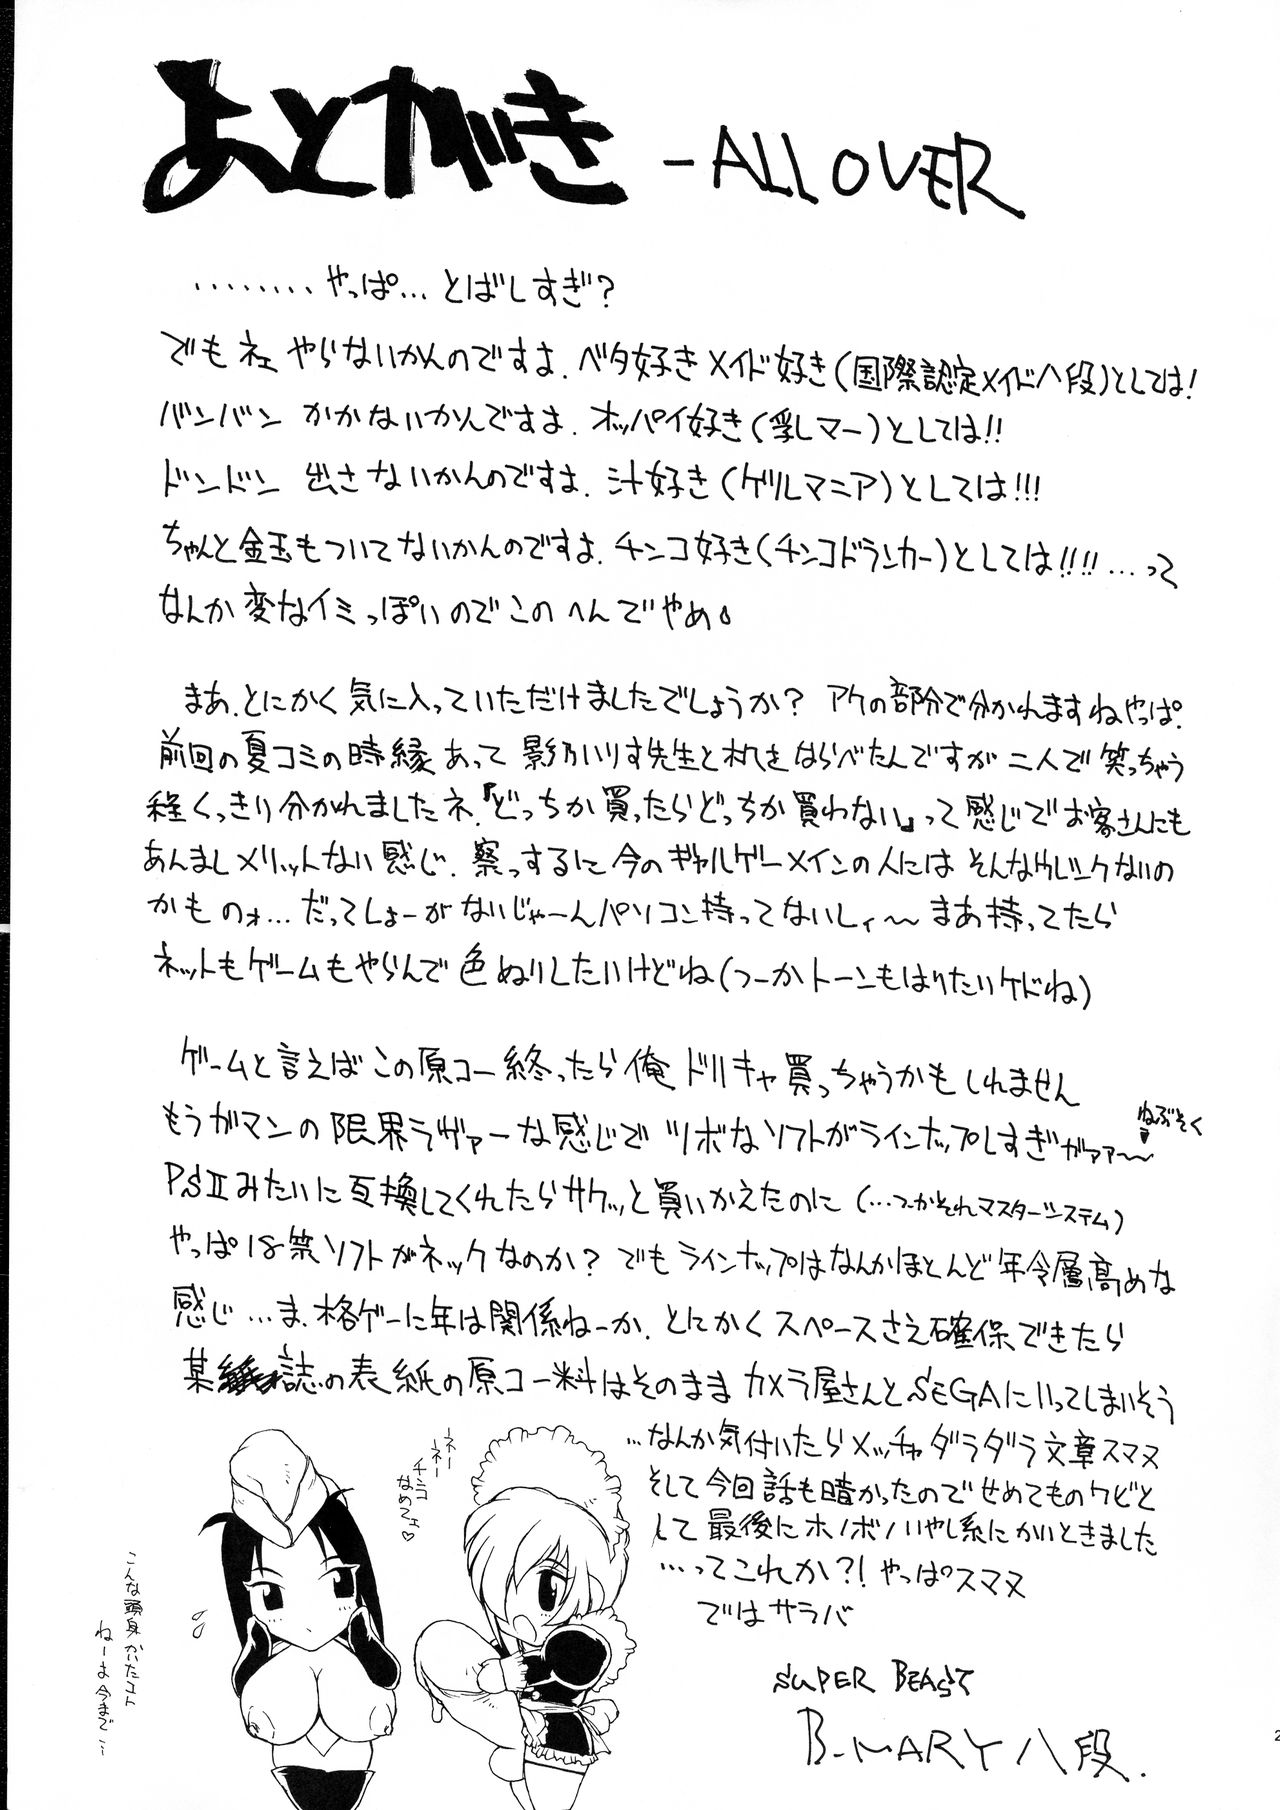 あとがき -ALL OVER
‥‥‥‥やっぱ…とばしすぎ?
でもネェ やらないかんのですよ. ベタ好きメイド好き(国際認定メイド八段)としては!
バンバン かかないかんですよ. オッパイ好き(乳しマー)としては!!
ドンドン 出さないかんのですよ. 汁好き(ゲルマニア)としては!!!
ちゃんと金玉もついてないかんのですよ. チンコ好き(チンコドランカー)としては!!!! …って
なんか変なイミっぽいのでこのへんでやめ。
まあ、とにかく気に入っていただけましたでしょうか? アケの部分で分かれますねやっぱ.
前回の夏コミの時縁あって 影乃いりす先生と机をならべたんですが二人で笑っちゃう
程くっきり分かれましたネ.『どっちか買ったらどっちか買わない』って感じでお客さんにも
あんましメリットない感じ. 察っするに今のギャルゲーメインの人にはそんなウレシクないの
かものォ… だってしょーがないじゃーんパソコン持ってないしィ〜 まあ持ってたら
ネットもゲームもやらんで色ぬりしたいけどね(つーかトーンもはりたいケドね)
ゲームと言えばこの原コー終ったら俺ドリキャ買っちゃうかもしれません
もうガマンの限界ラヴァーな感じでツボなソフトがラインナップしすぎがァァ〜
ねぶそく
PSⅡみたいに互換してくれたらサクッと買いかえたのに(…つーかそれマスターシステム)
やっぱ18禁ソフトがネックなのか? でもラインナップはなんかほとんど年令層高めな
感じ…ま、格ゲーに年は関係ねーか. とにかくスペースさえ確保できたら
某誌の表紙の原コー料はそのままカメラ屋さんとSEGAにいってしまいそう
…なんか気付いたらメッチャダラダラ文章スマヌ
そして今回話も暗かったのでせめてものクビと
して最後にホノボノいやし系にかいときました
…ってこれか?! やっぱスマヌ
ではサラバ
SUPER BEAST
B-MARY 八段.
ネーネー
チンコ
なめてェ♡
こんな頭身かいたコト
ねーよ今まで…
2